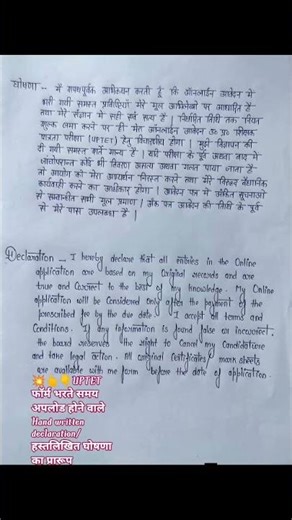 घोषणा - मैं शपथपूर्वक अभिकथन करती हूँ कि ऑनलाईन आवेदन में
भरी गयी समस्त प्रविष्टियाँ मेरे मूल अभिलेखों पर आधारित हैं
तथा मेरे संज्ञान में सही एवं सत्य हैं | निर्धारित तिथि तक नियत
शुल्क जमा करने पर ही मेरा ऑनलाईन आवेदन उ० प्र० शिक्षक
पात्रता परीक्षा (UPTET) हेतु विचारणीय होगा | मुझे विज्ञापन की
दी गयी समस्त शर्तें मान्य हैं | यदि परीक्षा के पूर्व अथवा बाद में
कोई भी विवरण असत्य अथवा गलत पाया जाता है
तो आयोग को मेरा अभ्यर्थन निरस्त करने तथा मेरे विरूद्ध वैधानिक
कार्यवाही करने का अधिकार होगा | आवेदन पत्र में अंकित सूचनाओं
से सम्बन्धित सभी मूल प्रमाण / अंक पत्र आवेदन की तिथि के पूर्व
से मेरे पास उपलब्ध हैं |
Declaration - I hereby declare that all entries in the Online
application are based on my Original records and are
true and Correct to the best of my knowledge. My Online
application will be Considered only after the payment of the
prescribed fee by the due date. I accept all terms and
Conditions. If any information is found false or incorrect,
the board reserves the right to Cancel my Candidature
and take legal action. All original Certificates/ mark sheets
are available with me from before the date of application.
UPTET
फॉर्म भरते समय
अपलोड होने वाले
Hand written
declaration/
हस्तलिखित घोषणा
का प्रारूप